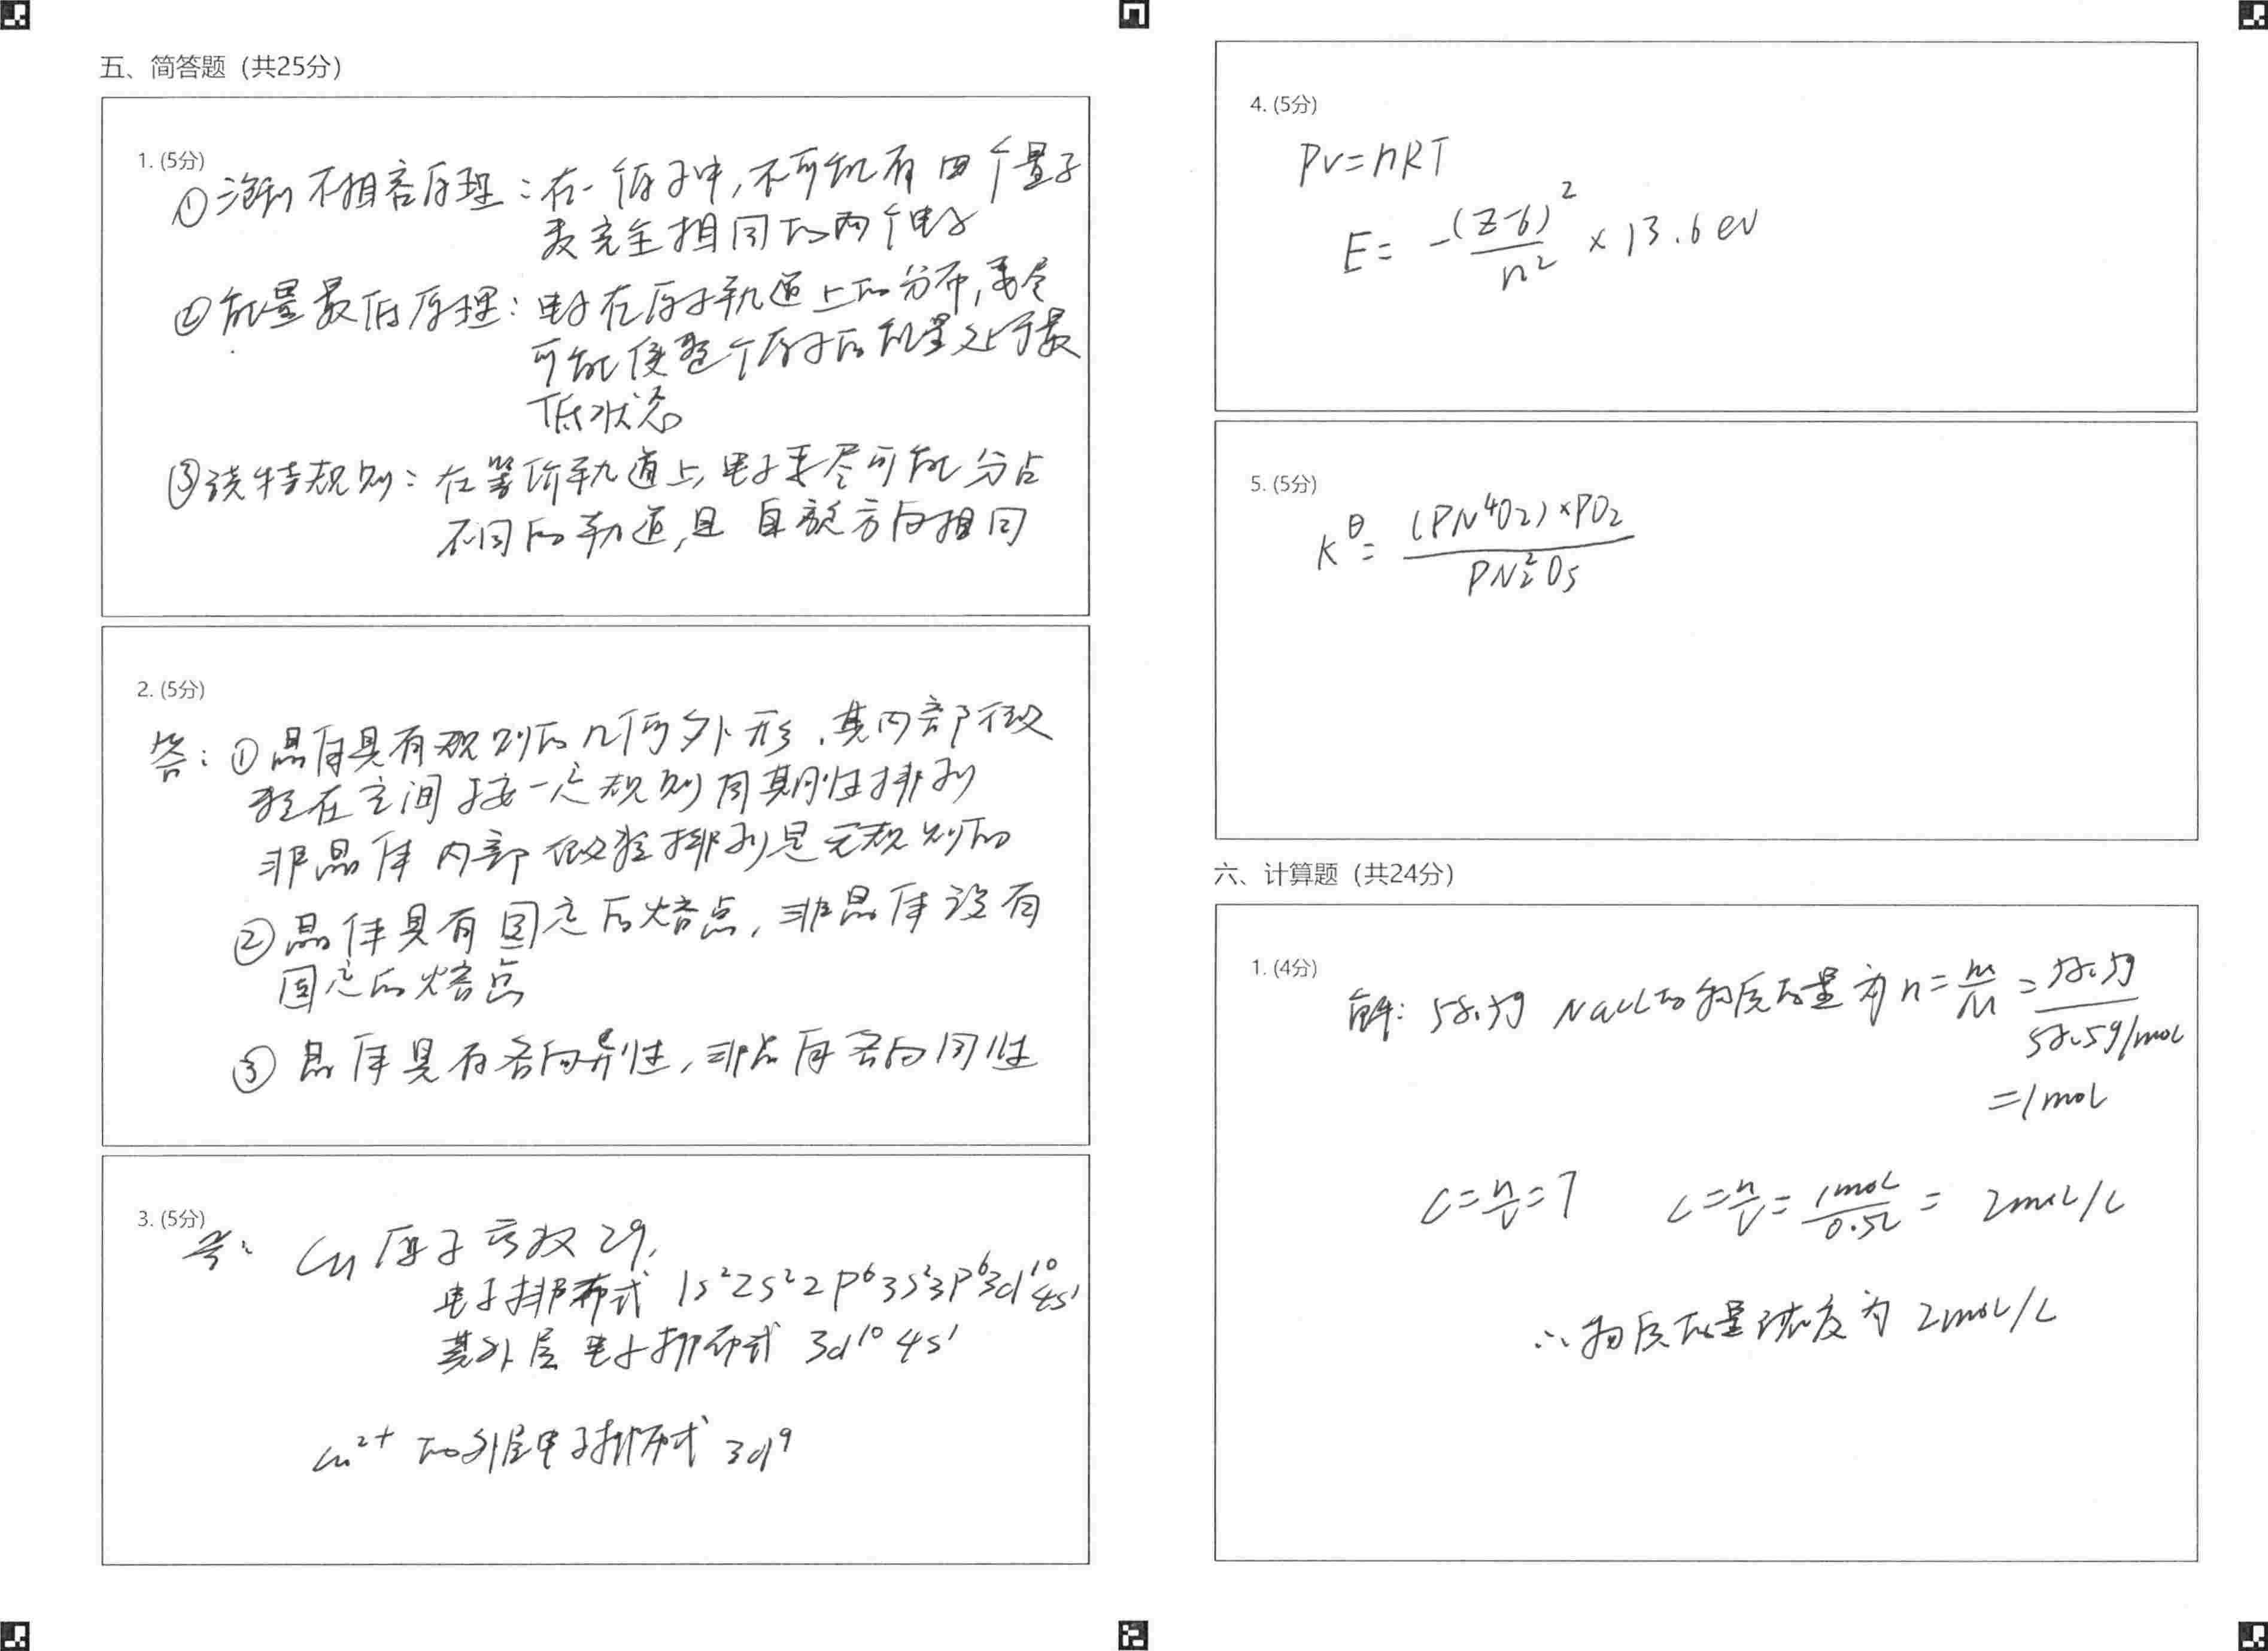 五、简答题（共25分）
1. (5分)
①泡利不相容原理：在一个原子中，不可能有四个量子
数完全相同的两个电子
②能量最低原理：电子在原子轨道上的分布，要尽
可能使整个原子的能量处于最
低状态
③洪特规则：在等价轨道上，电子要尽可能分占
不同的轨道，且自旋方向相同
2. (5分)
答：①晶体具有规则的几何外形，其内部微
粒在空间按一定规则周期性排列
非晶体内部微粒排列是无规则的
②晶体具有固定的熔点，非晶体没有
固定的熔点
③晶体具有各向异性，非晶体各向同性
3. (5分)
答： Cu原子序数29，
电子排布式 1s²2s²2p⁶3s²3p⁶3d¹⁰4s¹
其外层电子排布式 3d¹⁰4s¹
Cu²⁺的外层电子排布式 3d⁹
4. (5分)
PV=nRT
E= -(Z-6)²/n² × 13.6 eV
5. (5分)
K^θ= (PN⁴O₂)×PO₂ / PN₂²O₅
六、计算题（共24分）
1. (4分)
解：58.5g NaCl的物质的量为 n= m/M = 58.5g / 58.5g/mol
=1mol
C= n/V = 1 C= n/V = 1mol/0.5L = 2mol/L
∴物质的量浓度为 2mol/L